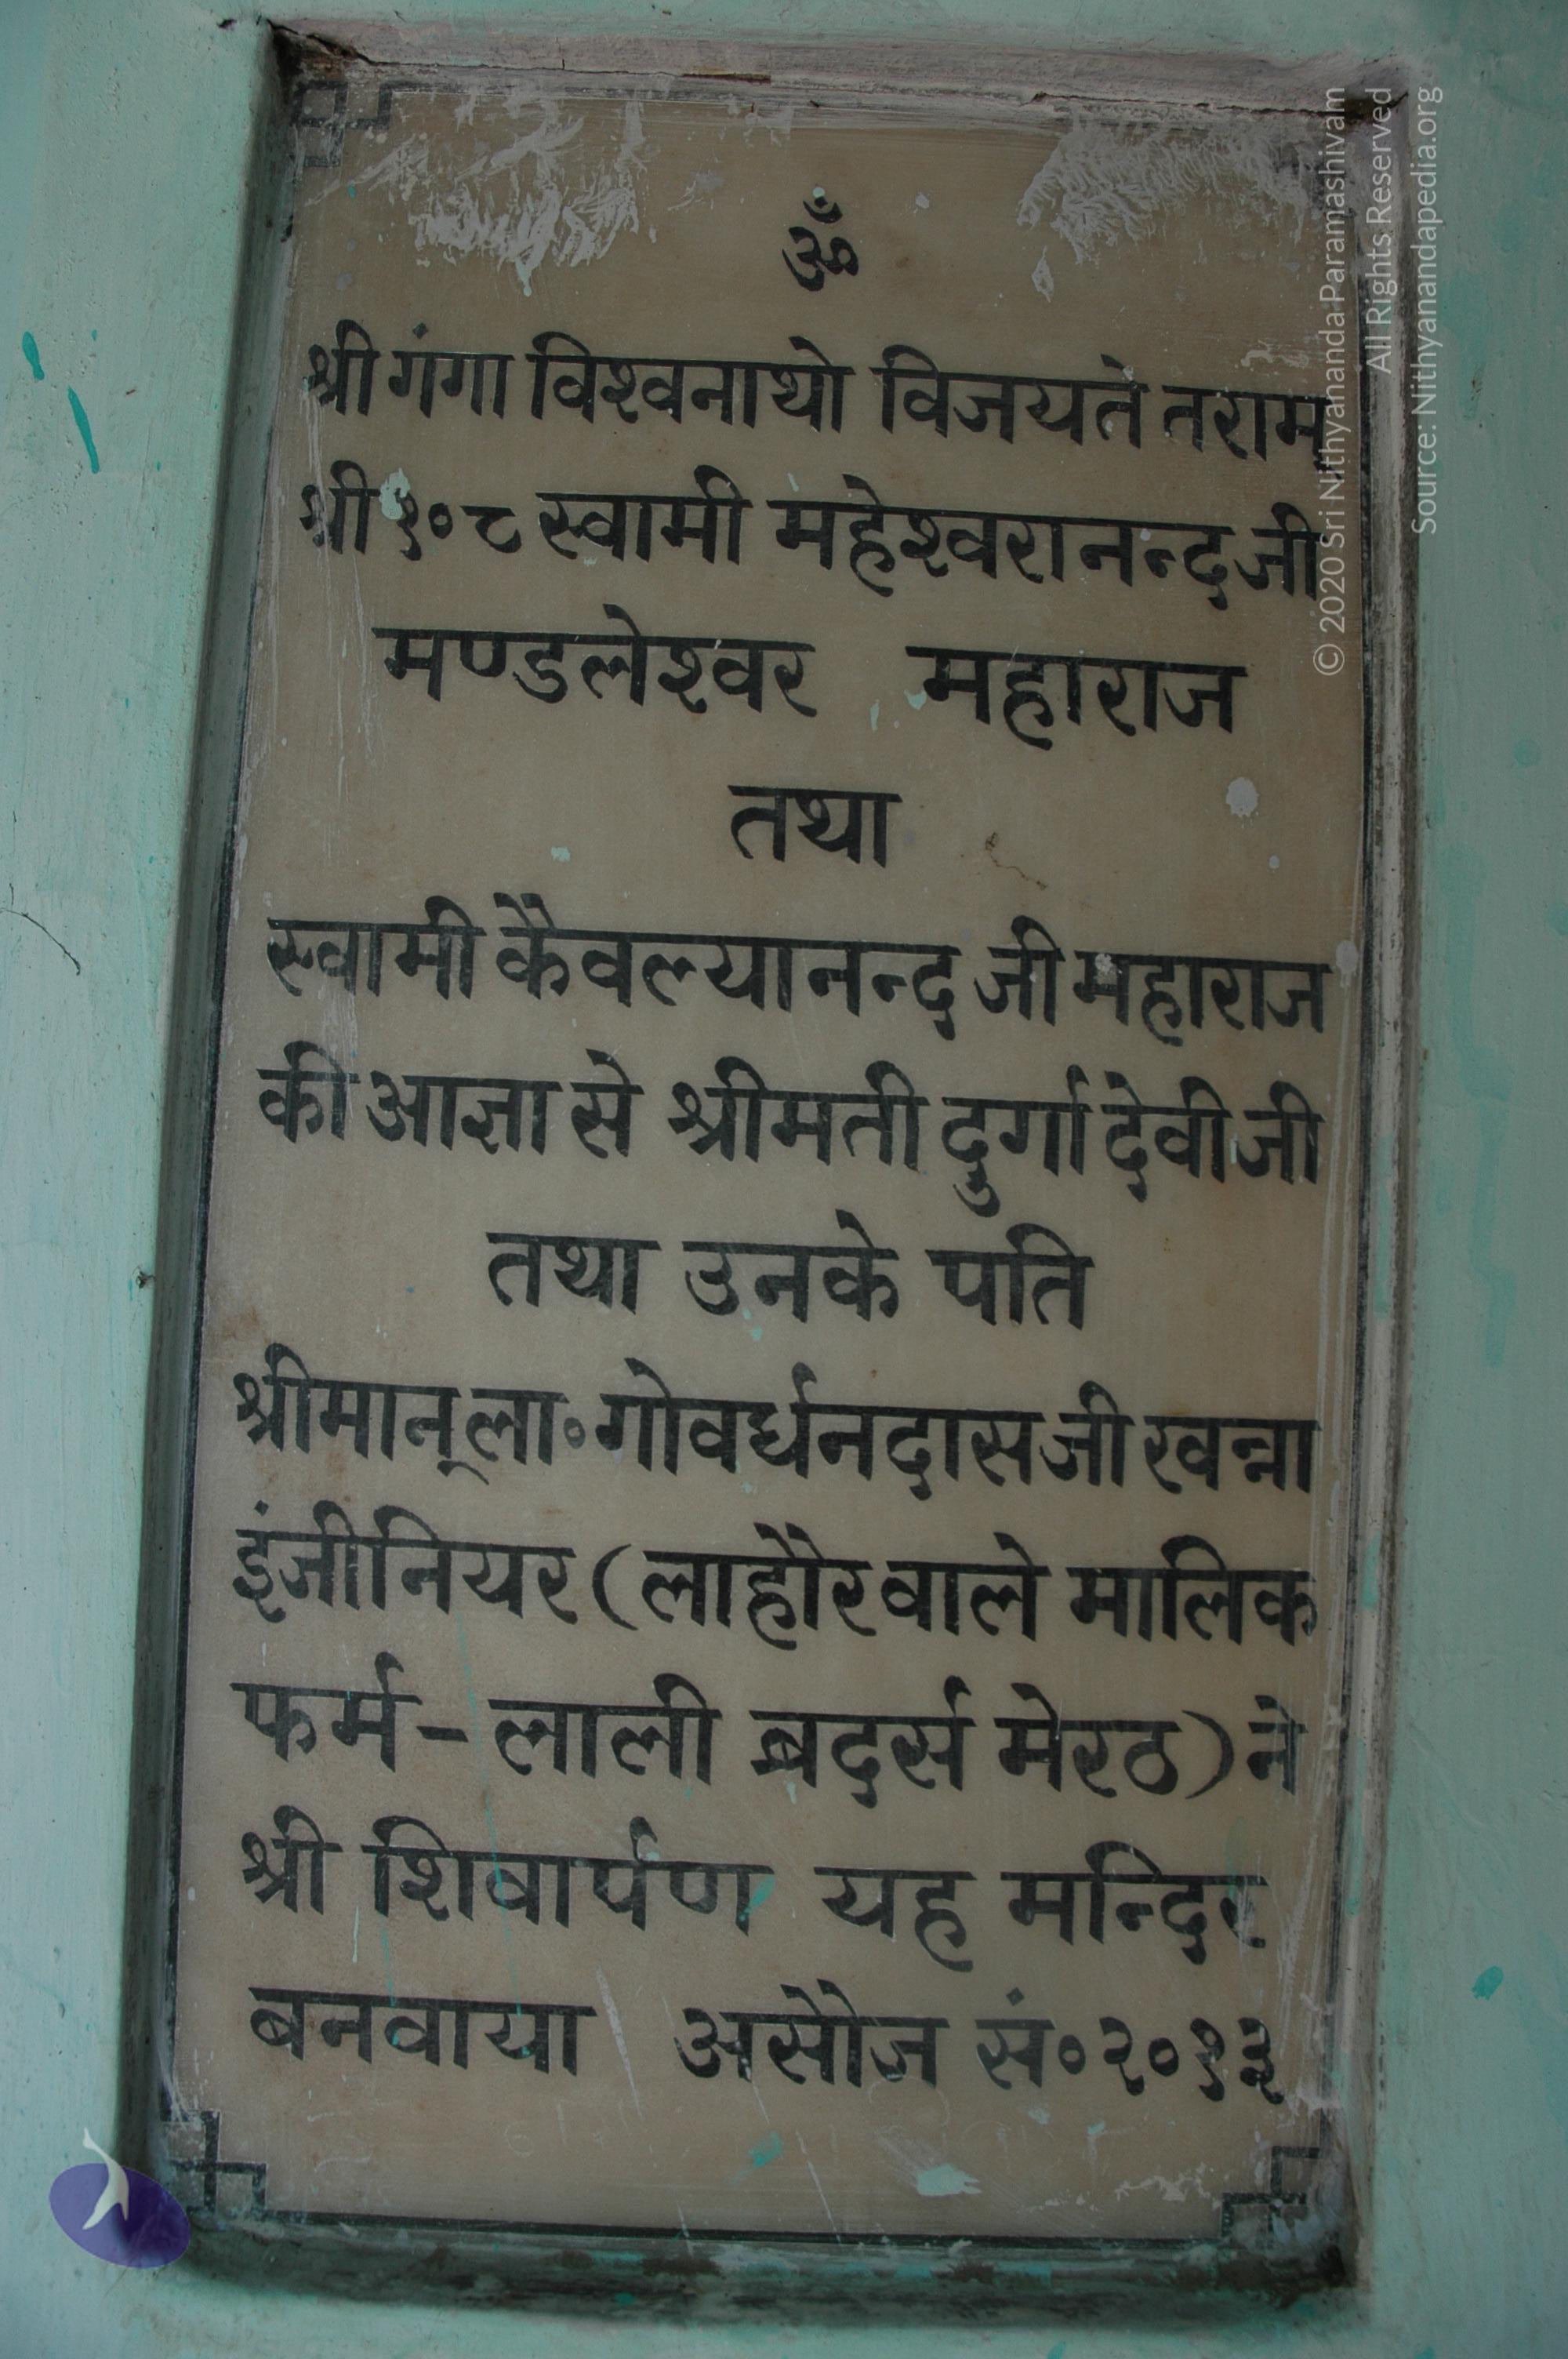 ॐ
श्री गंगा विश्वनाथो विजयते तराम्
श्री १०८ स्वामी महेश्वरानन्द जी
मण्डलेश्वर महाराज
तथा
स्वामी कैवल्यानन्द जी महाराज
की आज्ञा से श्रीमती दुर्गा देवी जी
तथा उनके पति
श्रीमान् ला॰ गोवर्धनदास जी खन्ना
इंजीनियर (लाहौर वाले मालिक
फर्म - लाली ब्रदर्स मेरठ) ने
श्री शिवार्पण यह मन्दिर
बनवाया असौज सं॰ २०१३
© 2020 Sri Nithyananda Paramashivam
All Rights Reserved
Source: Nithyanandapedia.org